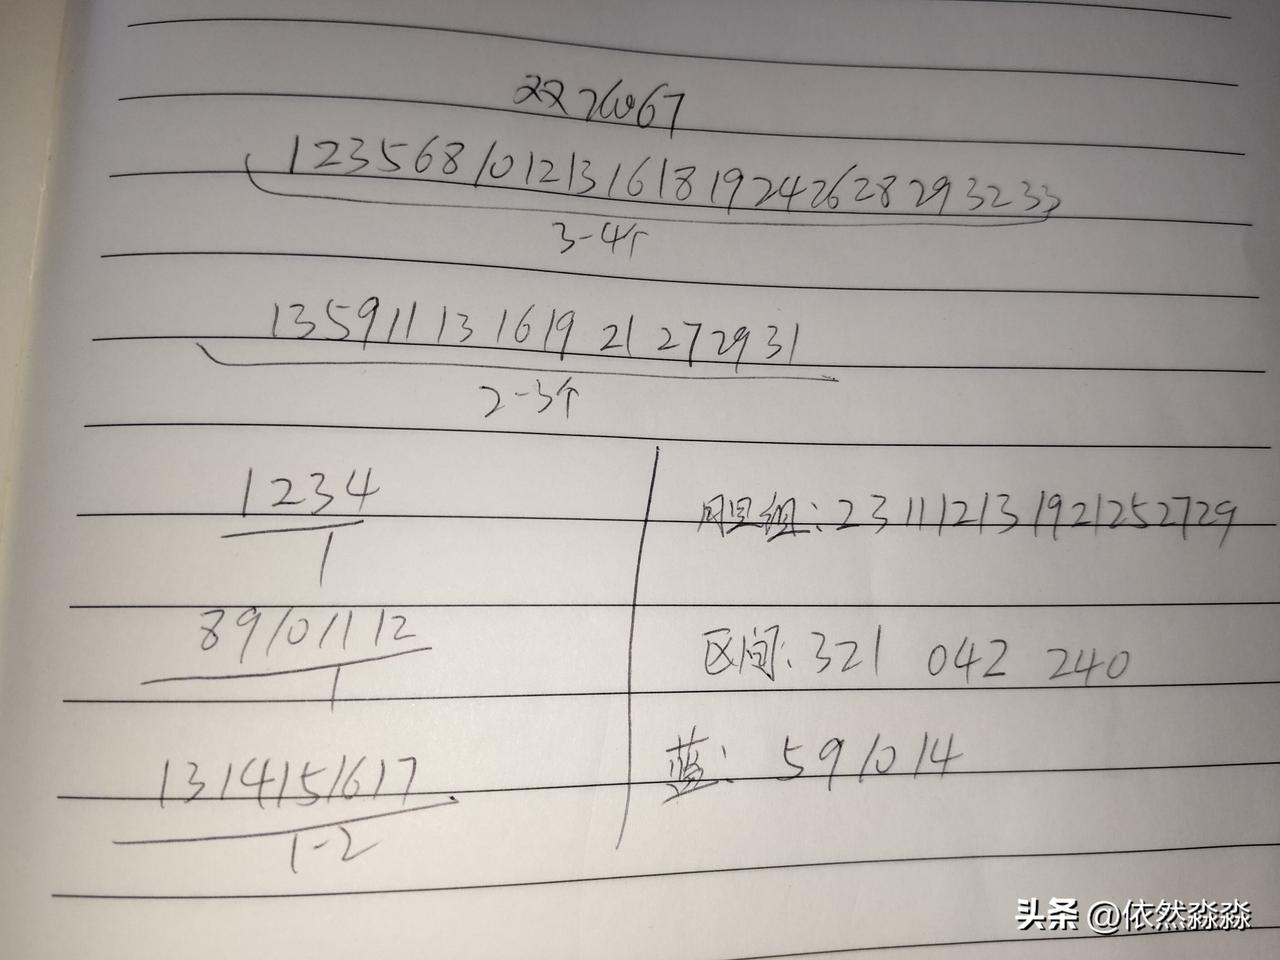 1 2 3 5 6 8 10 12 13 16 18 19 24 26 28 29 32 33
3-4个
1 3 5 9 11 13 16 19 21 27 29 31
2-3个
1 2 3 4
1
8 9 10 11 12
1
13 14 15 16 17
1-2
胆组: 2 3 11 12 13 19 21 25 27 29
区间: 321 042 240
蓝: 5 9 10 14
头条 @依然淼淼